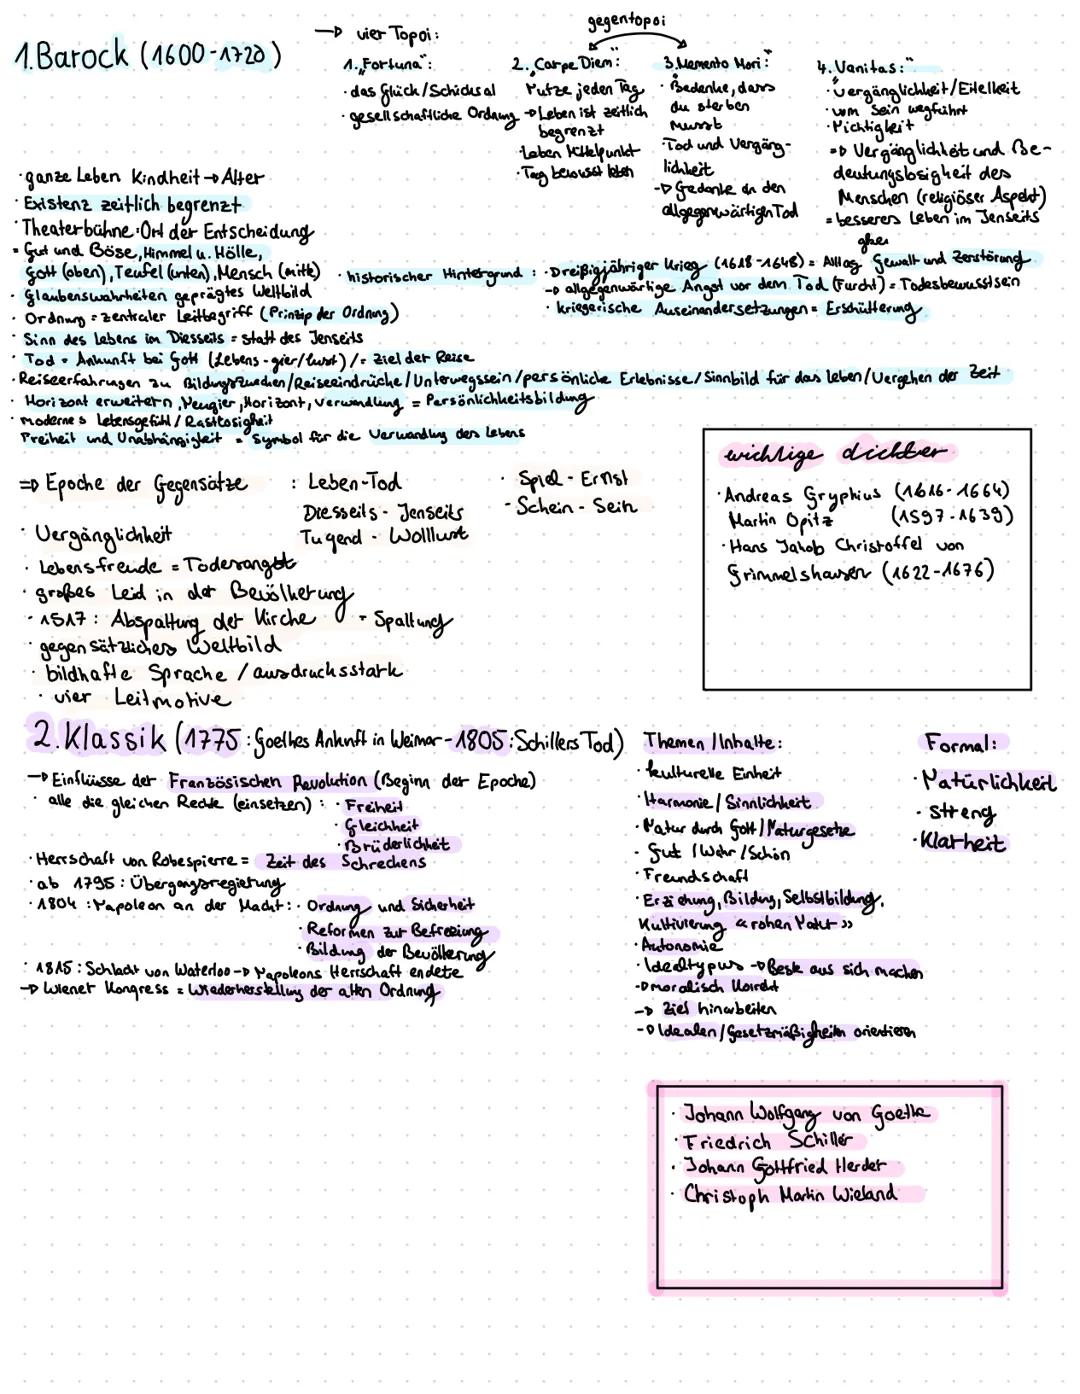 gegentopoi
1. Barock (1600-1720)
→ vier Topoi:
1. „Fortuna":
· das Glück/Schicksal
· gesellschaftliche Ordnung
2. „Carpe Diem":
Nutze jeden Tag
→ Leben ist zeitlich
begrenzt
· Leben Mittelpunkt
· Tag bewusst leben
3. „Memento Mori:"
· Bedenke, dass
du sterben
musst
· Tod und Vergäng-
lichkeit
→ Gedanke an den
allgegenwärtigen Tod
4. „Vanitas:"
· Vergänglichkeit/Eitelkeit
· vom Sein wegführt
· Nichtigkeit
=> Vergänglichkeit und Be-
deutungslosigkeit des
Menschen (religiöser Aspekt)
= besseres Leben im Jenseits
· ganze Leben Kindheit → Alter
· Existenz zeitlich begrenzt
· Theaterbühne: Ort der Entscheidung
= Gut und Böse, Himmel u. Hölle,
Gott (oben), Teufel (unten), Mensch (mitte)
· Glaubenswahrheiten geprägtes Weltbild
· Ordnung = zentraler Leitbegriff (Prinzip der Ordnung)
· historischer Hintergrund : · Dreißigjähriger Krieg (1618-1648) = Alltag Gewalt und Zerstörung
→ allgegenwärtige Angst vor dem Tod (Furcht) = Todesbewusstsein
· kriegerische Auseinandersetzungen = Erschütterung
· Sinn des Lebens im Diesseits = statt des Jenseits
· Tod = Ankunft bei Gott (Lebens-gier/lust) / = Ziel der Reise
· Reiseerfahrungen zu Bildungszwecken/Reiseeindrücke/Unterwegssein/persönliche Erlebnisse/Sinnbild für das Leben/Vergehen der Zeit
· Horizont erweitern, Neugier, Horizont, Verwandlung = Persönlichkeitsbildung
· modernes Lebensgefühl / Rastlosigkeit
Freiheit und Unabhängigkeit = Symbol für die Verwandlung des Lebens
=> Epoche der Gegensätze : Leben-Tod
Diesseits - Jenseits
Tugend - Wolllust
· Spiel - Ernst
· Schein - Sein
· Vergänglichkeit
· Lebensfreude = Todesangst
· großes Leid in der Bevölkerung
· 1517: Abspaltung der Kirche = Spaltung
· gegensätzliches Weltbild
· bildhafte Sprache / ausdrucksstark
· vier Leitmotive
wichtige dichter
· Andreas Gryphius (1616-1664)
Martin Opitz (1597-1639)
· Hans Jakob Christoffel von
Grimmelshausen (1622-1676)
2. Klassik (1775: Goethes Ankunft in Weimar - 1805: Schillers Tod)
→ Einflüsse der Französischen Revolution (Beginn der Epoche)
· alle die gleichen Rechte (einsetzen) : · Freiheit
· Gleichheit
· Brüderlichkeit
· Herrschaft von Robespierre = Zeit des Schreckens
· ab 1795: Übergangsregierung
· 1804: Napoleon an der Macht: · Ordnung und Sicherheit
· Reformen zur Befreiung
· Bildung der Bevölkerung
· 1815: Schlacht von Waterloo → Napoleons Herrschaft endete
→ Wiener Kongress = Wiederherstellung der alten Ordnung
Themen/Inhalte:
· kulturelle Einheit
· Harmonie/Sinnlichkeit
· Natur durch Gott/Naturgesetze
· Gut/Wahr/Schön
· Freundschaft
· Erziehung, Bildung, Selbstbildung,
Kultivierung «rohen Natur»
· Autonomie
· Idealtypus → Beste aus sich machen
→ moralisch korrekt
→ Ziel hinarbeiten
→ Idealen/Gesetzmäßigkeiten orientieren
Formal:
· Natürlichkeit
· streng
· Klarheit
· Johann Wolfgang von Goethe
· Friedrich Schiller
· Johann Gottfried Herder
· Christoph Martin Wieland